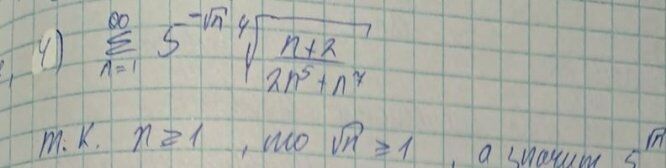 4) ∞ Σ n=1 5^{-√n} ⁴√((n+2)/(2n⁵+n⁷))
т.к. n ≥ 1, то √n ≥ 1, а значит 5^{√n}